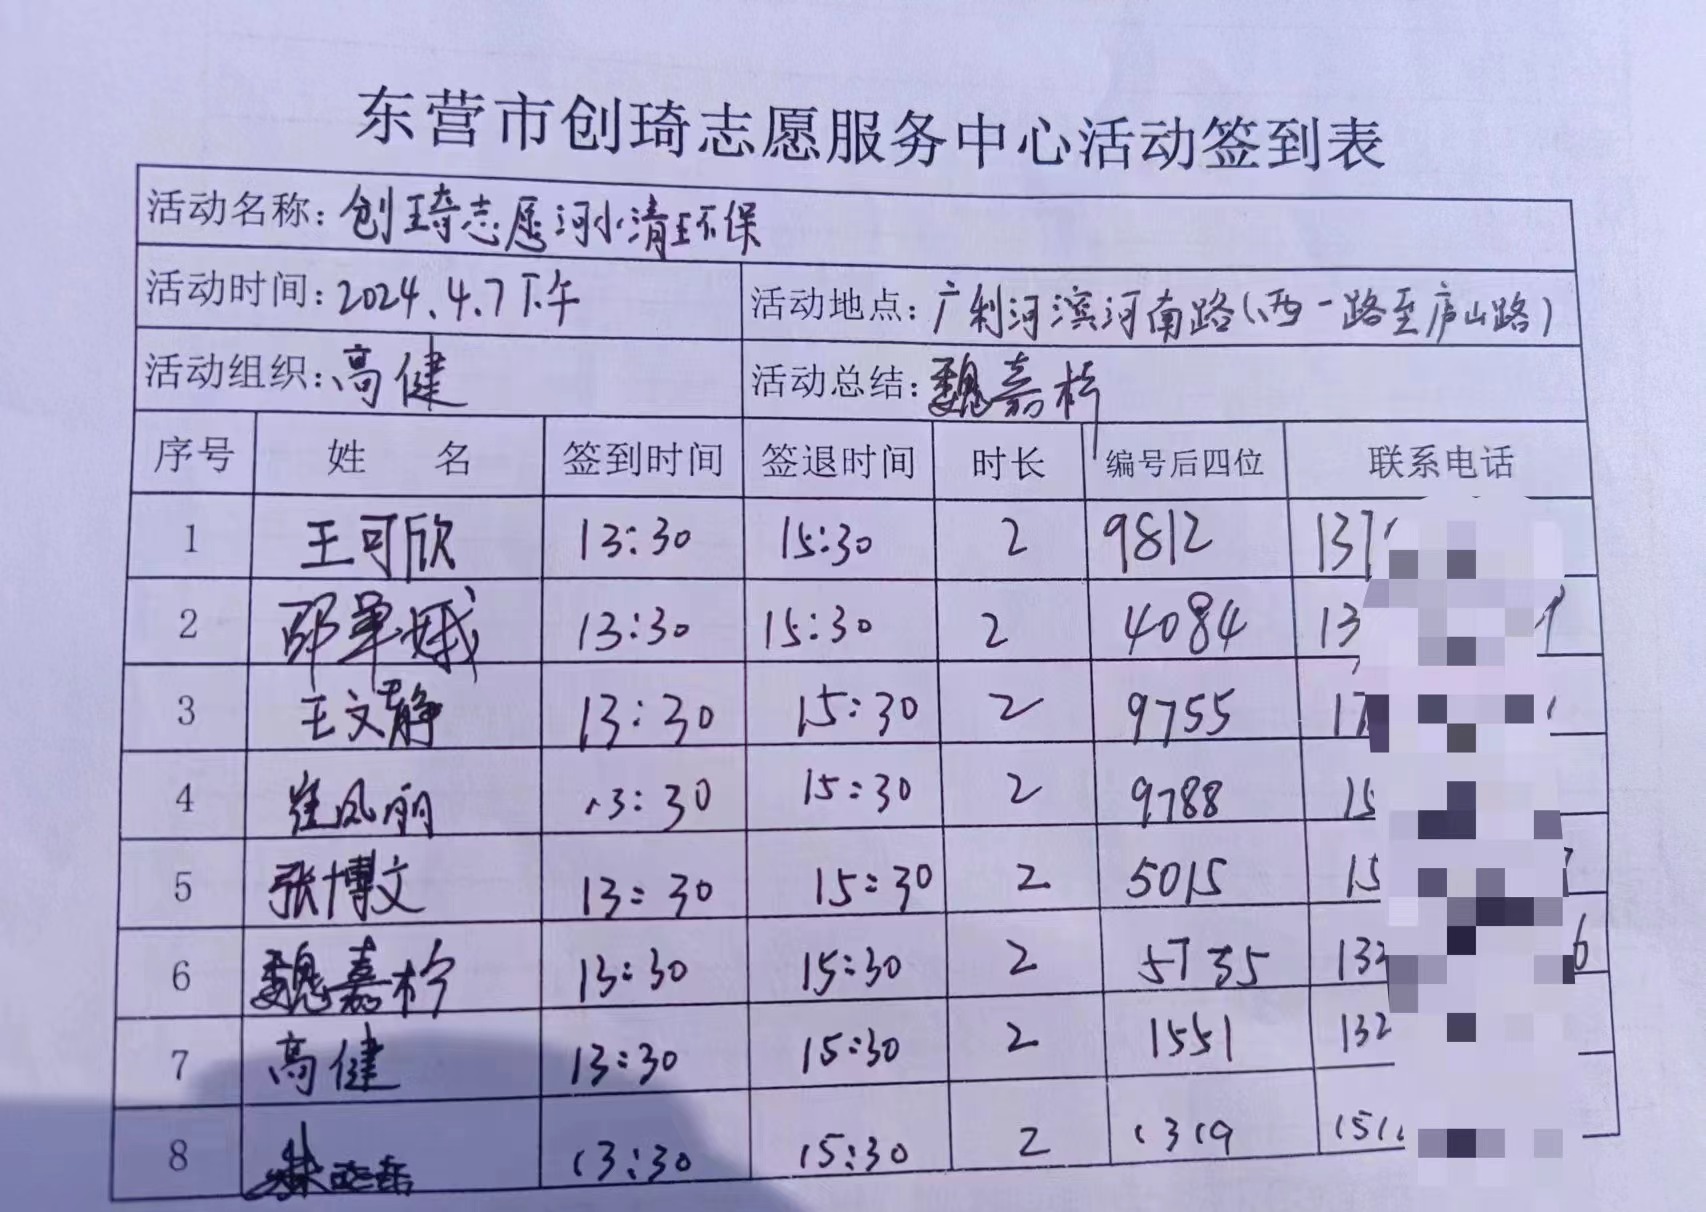 东营市创琦志愿服务中心活动签到表
活动名称：创琦志愿河小清环保
活动时间：2024.4.7下午 活动地点：广利河滨河南路（西一路至庐山路）
活动组织：高健 活动总结：魏嘉柠
序号 姓 名 签到时间 签退时间 时长 编号后四位 联系电话
1 王可欣 13:30 15:30 2 9812 137
2 13:30 15:30 2 4084 13
3 王文静 13:30 15:30 2 9755 17
4 崔凤丽 13:30 15:30 2 9788 15
5 张博文 13:30 15:30 2 5015 15
6 魏嘉柠 13:30 15:30 2 5735 132 6
7 高健 13:30 15:30 2 1551 132
8 13:30 15:30 2 1319 151